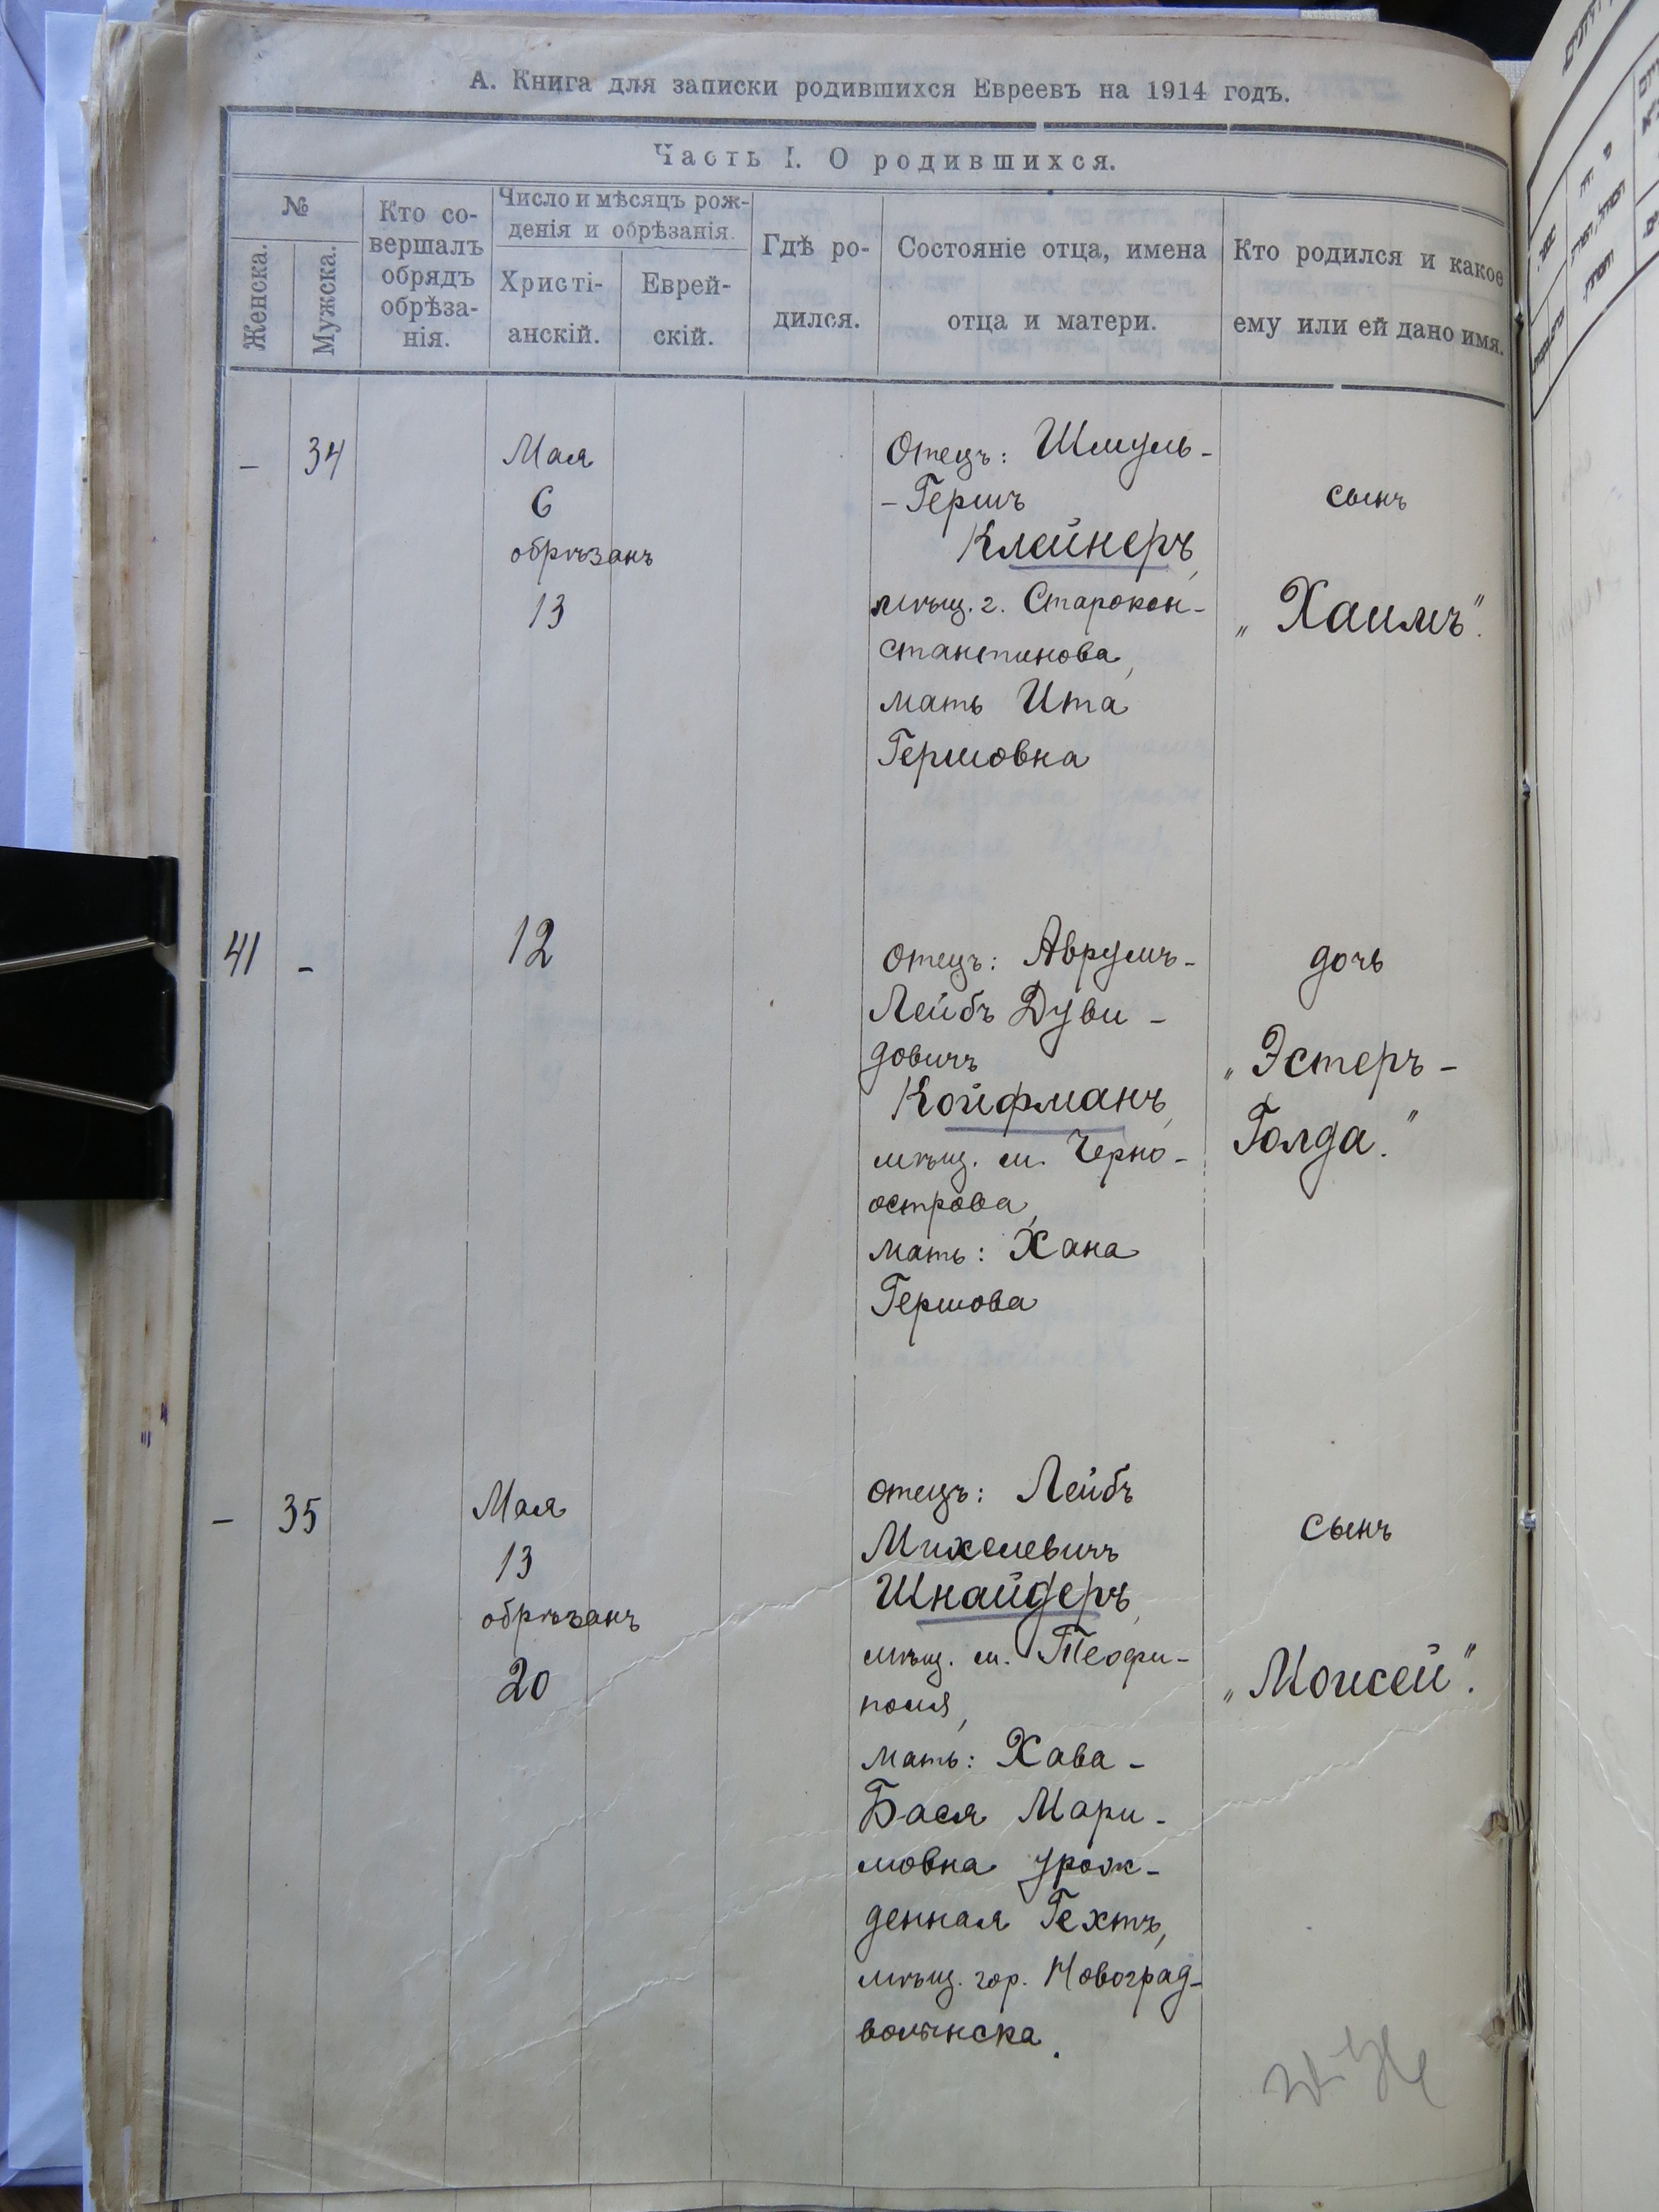 А. Книга для записки родившихся Евреевъ на 1914 годъ.
Часть I. О родившихся.
№
Женска.
Мужска.
Кто со-
вершалъ
обрядъ
обрѣза-
нія.
Число и мѣсяцъ рож-
денія и обрѣзанія.
Христі-
анскій.
Еврей-
скій.
Гдѣ ро-
дился.
Состояніе отца, имена
отца и матери.
Кто родился и какое
ему или ей дано имя.
– 34
Мая
6
обрѣзанъ
13
Отецъ: Шмуль-
-Гершъ
Клейнеръ,
мѣщ. г. Старокон-
стантинова,
мать Ита
Гершовна
сынъ
„Хаимъ".
41 –
12
отецъ: Аврумъ-
Лейбъ Дуви-
довичъ
Койфманъ,
мѣщ. м. Черно-
острова,
мать: Хана
Гершова
дочь
„Эстеръ-
Голда."
– 35
Мая
13
обрѣзанъ
20
отецъ: Лейбъ
Михелевичъ
Шнайдеръ,
мѣщ. м. Теофи-
поля,
мать: Хава-
Бася Мари-
мовна урож-
денная Гехтъ,
мѣщ. гор. Новоград-
волынска.
сынъ
„Моисей".